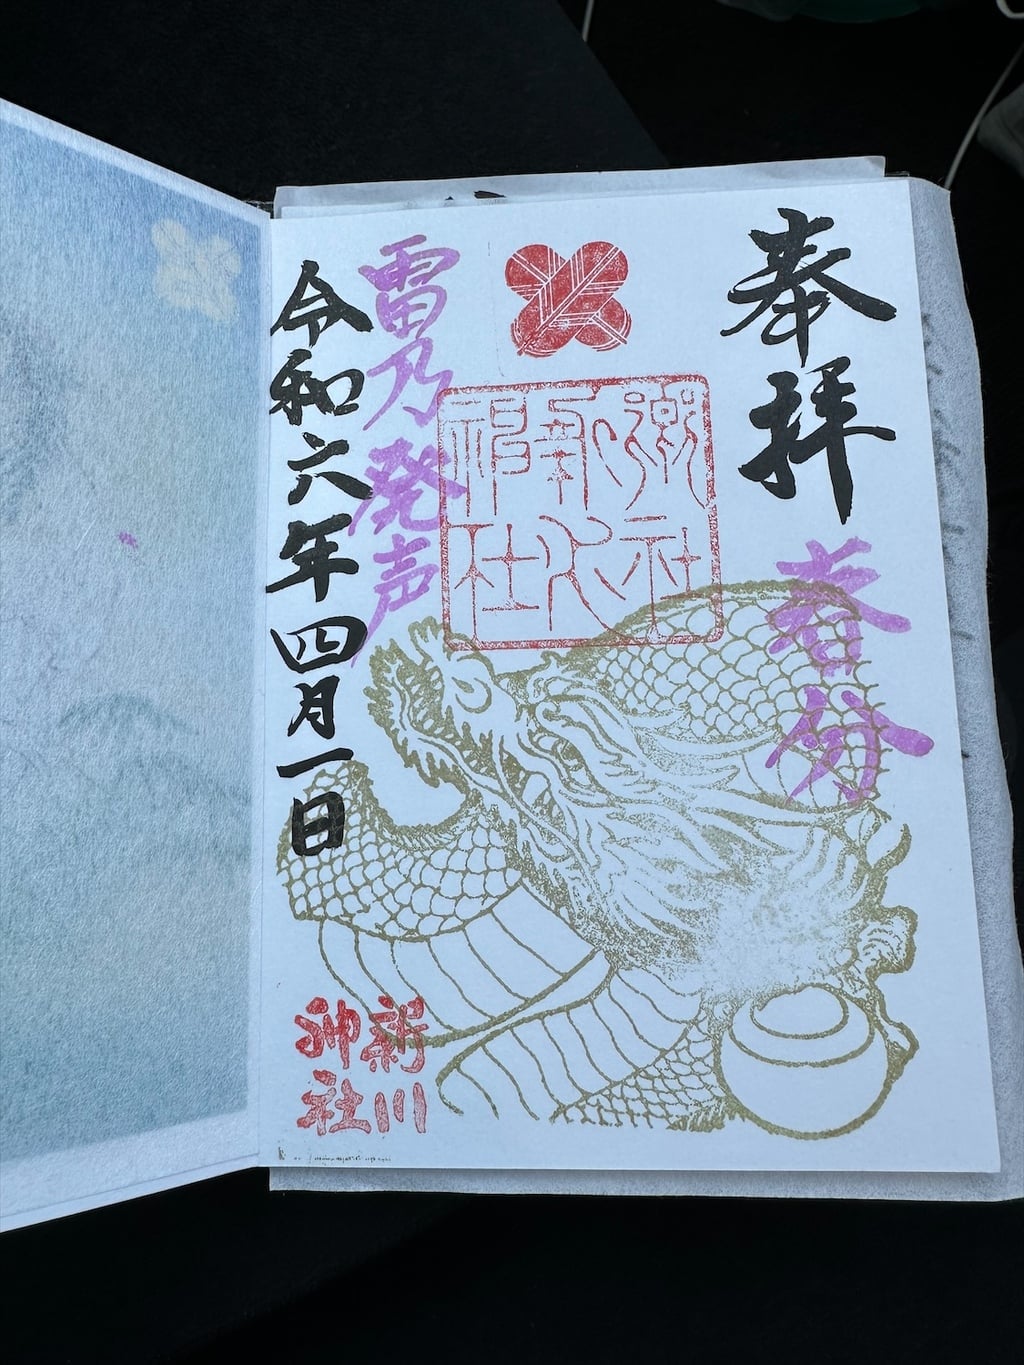 奉拝
春分
郷社
新川
神社
雷乃発声
令和六年四月一日
新川
神社